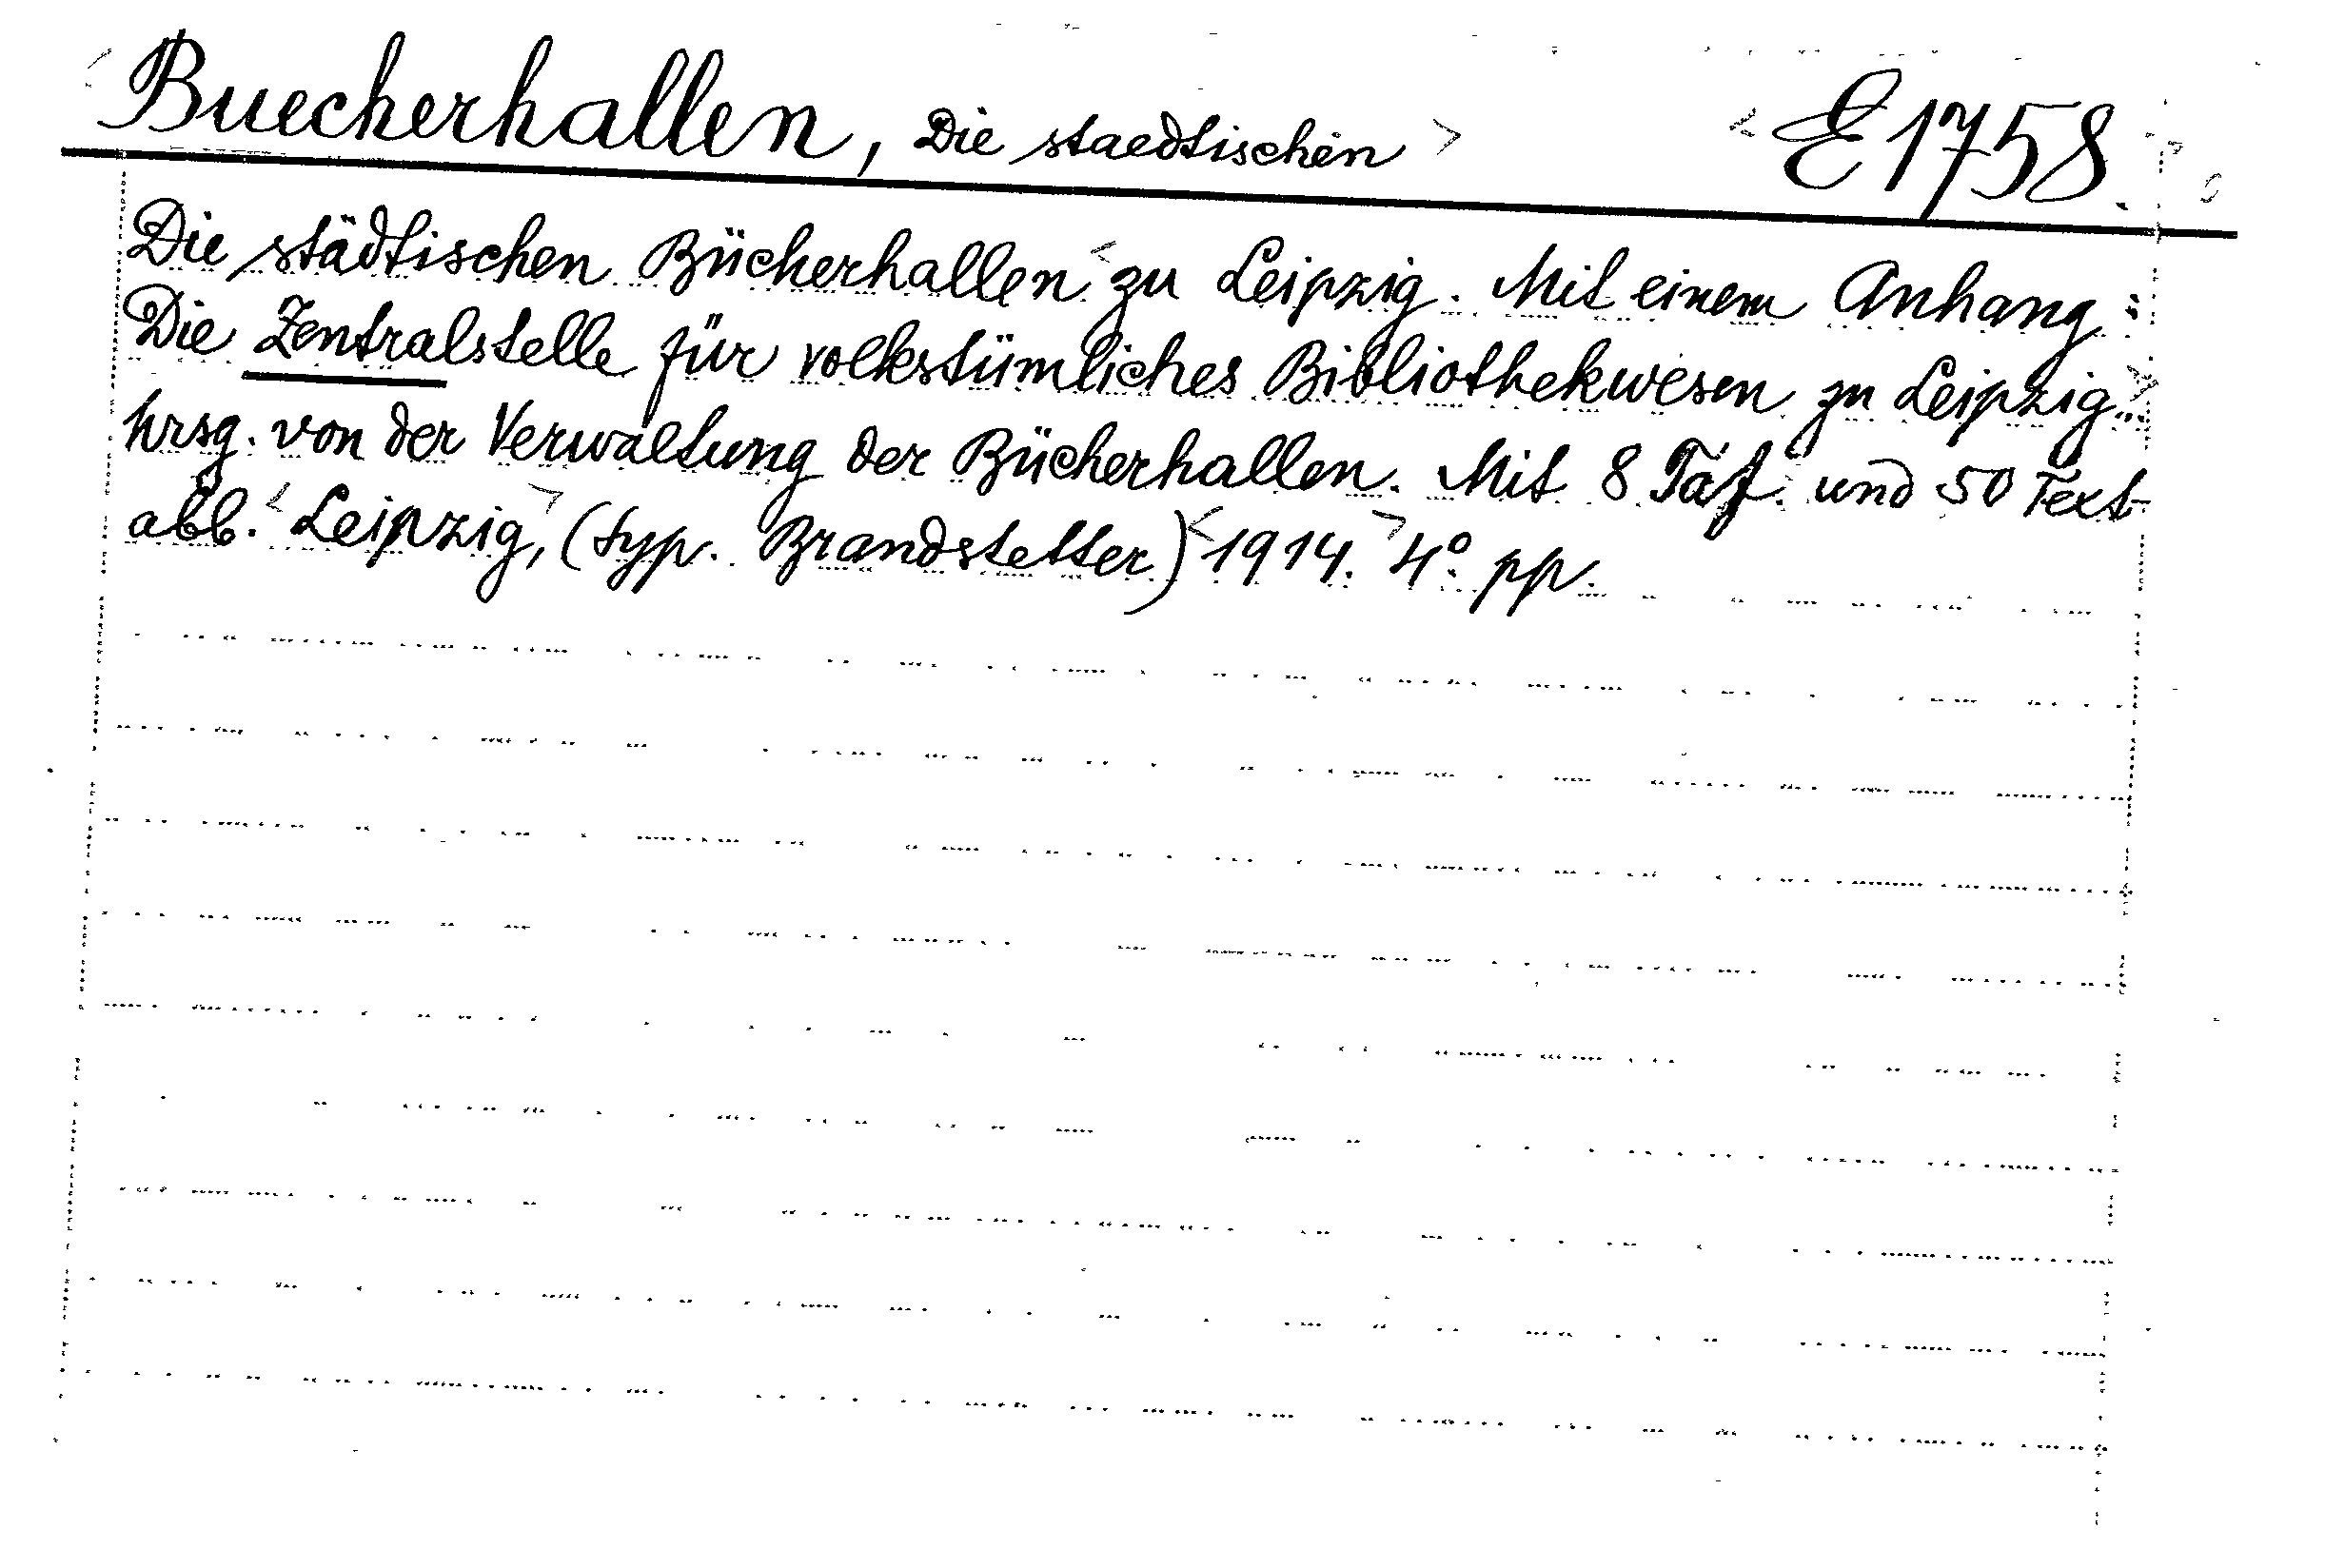 Buecherhallen, Die staedtischen E1758.
Die städtischen Bücherhallen zu Leipzig. Mit einem Anhang:
Die Zentralstelle für volkstümliches Bibliothekwesen zu Leipzig...
hrsg. von der Verwaltung der Bücherhallen. Mit 8 Taf. und 50 Text-
abb. Leipzig, (typ. Brandstetter) 1914. 4° pp.